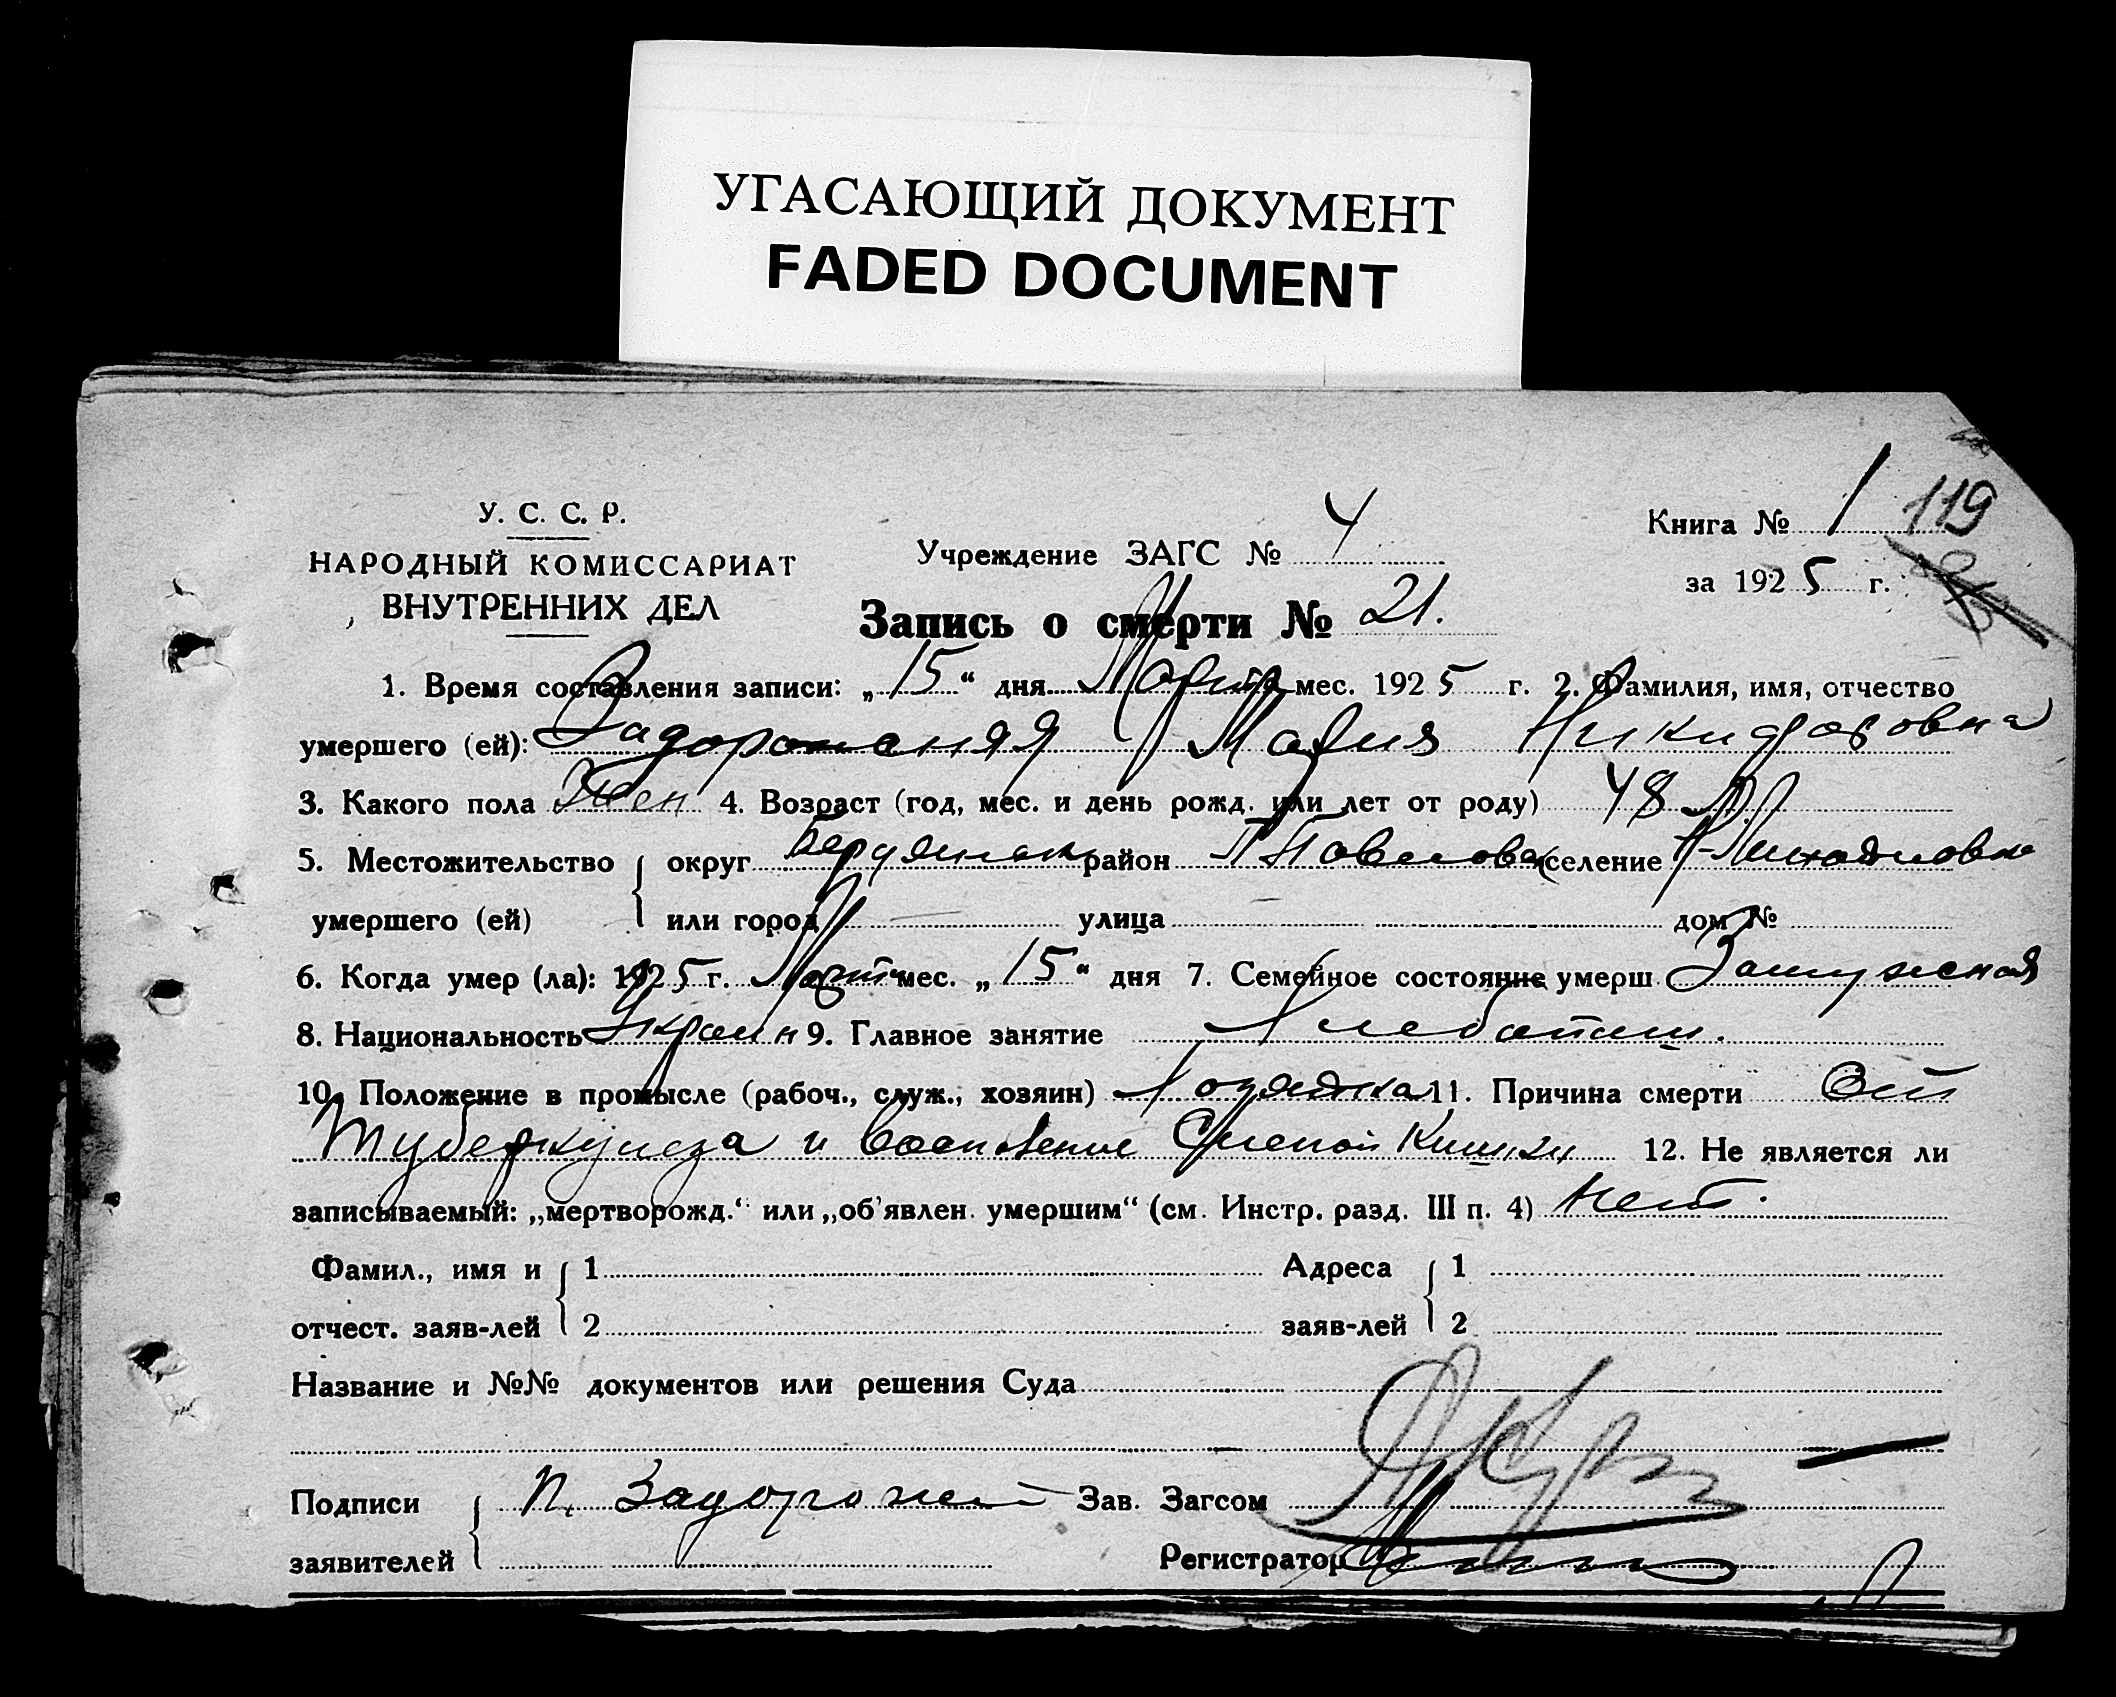 УГАСАЮЩИЙ ДОКУМЕНТ
FADED DOCUMENT
У. С. С. Р.
НАРОДНЫЙ КОМИССАРИАТ
ВНУТРЕННИХ ДЕЛ
Учреждение ЗАГС № 4
Книга № 1 119
за 1925 г.
Запись о смерти № 21.
1. Время составления записи: „15“ дня Марта мес. 1925 г. 2. Фамилия, имя, отчество
умершего (ей): Задорожная Мария Никифоровна
3. Какого пола Жен 4. Возраст (год, мес. и день рожд. или лет от роду) 48 л.
5. Местожительство округ Бердянский район селение
умершего (ей) или город улица дом №
6. Когда умер (ла): 1925 г. Март мес. „15“ дня 7. Семейное состояние умерш. Замужная
8. Национальность Украин 9. Главное занятие Хлебопаш.
10. Положение в промысле (рабоч., служ., хозяин) Хозяйка 11. Причина смерти От
туберкулеза и Воспаление Слепой Кишки 12. Не является ли
записываемый: „мертворожд.“ или „об'явлен. умершим“ (см. Инстр. разд. III п. 4) нет.
Фамил., имя и 1 Адреса 1
отчест. заяв-лей 2 заяв-лей 2
Название и №№ документов или решения Суда
Подписи П. Задорожний Зав. Загсом
заявителей Регистратор